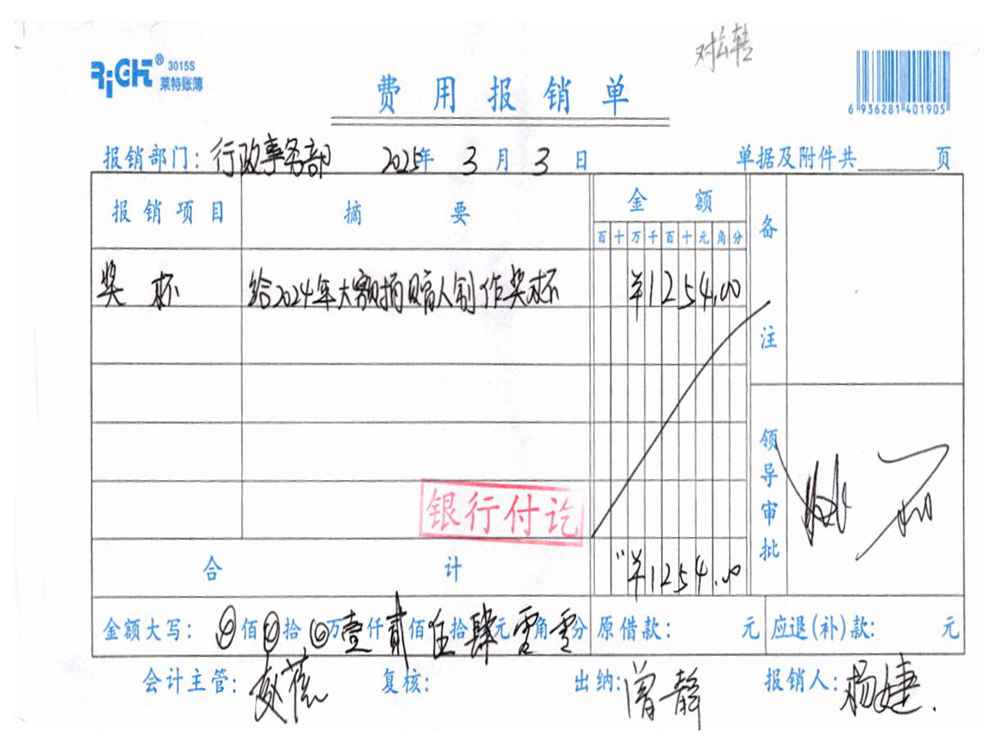 对公转
RiGHT® 3015S
莱特账簿
费用报销单
6 936281 401905
报销部门：行政事务部 2025年 3月 3日 单据及附件共 页
报销项目 摘要 金额 备注
百 十 万 千 百 十 元 角 分
奖杯 给2024年大额捐赠人制作奖杯 ¥1254.00
领导审批
银行付讫
合计 ¥1254.00
金额大写： 佰 拾 万壹仟贰佰伍拾肆元零角零分 原借款： 元 应退(补)款: 元
会计主管: 复核: 出纳:曾静 报销人:杨婕.